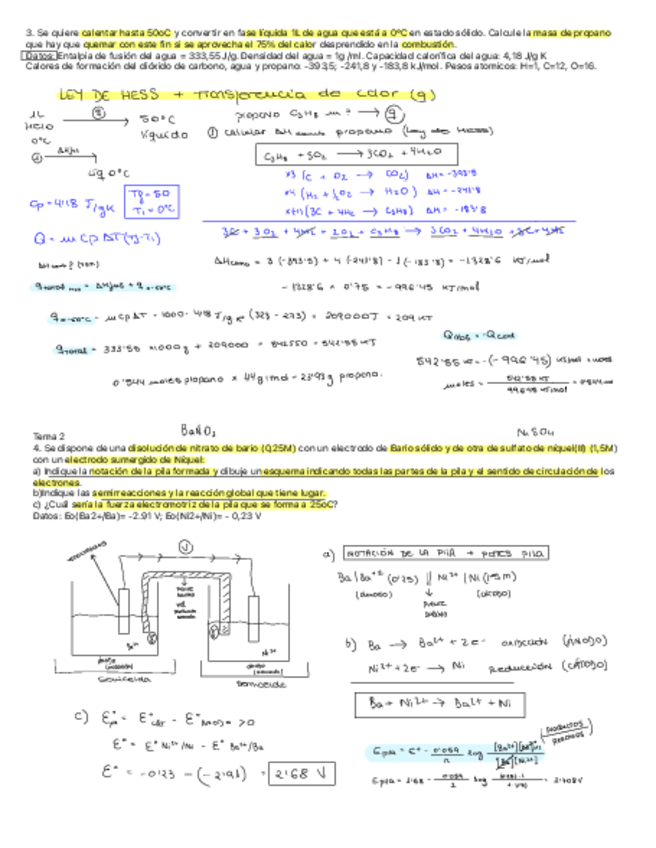 3. Se quiere calentar hasta 50oC y convertir en fase líquida 1L de agua que está a 0ºC en estado sólido. Calcule la masa de propano
que hay que quemar con este fin si se aprovecha el 75% del calor desprendido en la combustión.
Datos: Entalpía de fusión del agua = 333,55 J/g. Densidad del agua = 1g /ml. Capacidad calorífica del agua: 4,18 J/g K
Calores de formación del dióxido de carbono, agua y propano: -393,5; -241,8 y -183,8 kJ/mol. Pesos atomicos: H=1, C=12, O=16.
LEY DE HESS + Transferencia de calor (q)
1L
HIELO
0ºC
50ºC
líquido
propano C3H8 m? → q
① calcular ΔH propano (Ley de Hess)
C3H8 + 5O2 → 3CO2 + 4H2O
líq 0ºC
x3 (C + O2 → CO2) ΔH = -393'5
x4 (H2 + ½O2 → H2O) ΔH = -241'8
(3C + 4H2 → C3H8) ΔH = -183'8
Cp = 4'18 J/gK
Tf = 50
Ti = 0ºC
Q = m Cp ΔT (Tf-Ti)
= 3 (-393'5) + 4 (-241'8) - 1 (-183'8) = -1328'6 KJ/mol
-1328'6 x 0'75 = -996'45 KJ/mol
= m Cp ΔT = 1000 · 4'18 J/g K (323 - 273) = 209000J = 209 KJ
q total = 333'55 x 1000g + 209000 = 542550 = 542'55 KJ
Qabs = -Qced
542'55 KJ = -(-996'45) KJ/mol · moles
0'544 moles propano x 44 g/mol = 23'93g propano.
moles = 542'55 KJ / 996'45 KJ/mol = 0'544
BaNO3
NiSO4
Tema 2
4. Se dispone de una disolución de nitrato de bario (0,25M) con un electrodo de Bario sólido y de otra de sulfato de níquel(II) (1,5M)
con un electrodo sumergido de Níquel:
a) Indique la notación de la pila formada y dibuje un esquema indicando todas las partes de la pila y el sentido de circulación de los
electrones.
b)Indique las semirreacciones y la reacción global que tiene lugar.
c) ¿Cuál sería la fuerza electromotriz de la pila que se forma a 25oC?
Datos: Eo(Ba2+/Ba)= -2.91 V; Eo(Ni2+/Ni)= - 0,23 V
V
a) NOTACIÓN DE LA PILA + PARTES PILA
Ba | Ba+2 (0'25) || Ni2+ | Ni (1'5M)
(ánodo)
(cátodo)
puente
salino
Ba2+
Ni2+
b) Ba → Ba2+ + 2e- oxidación (ÁNODO)
Ni2+ + 2e- → Ni reducción (CÁTODO)
Ba + Ni2+ → Ba2+ + Ni
c) Eºpila = Eºcat - Eºánodo > 0
Eº = Eº Ni2+/Ni - Eº Ba2+/Ba
Eº = -0'23 - (-2'91) = 2'68 V
productos